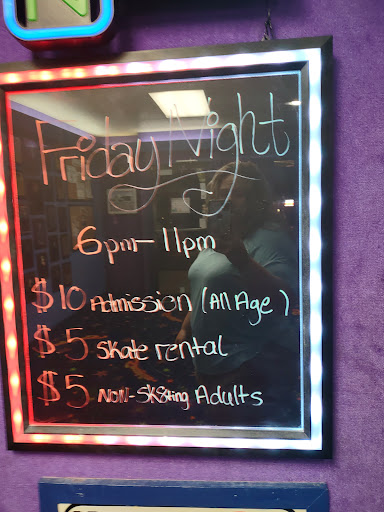 Friday Night
6pm - 11pm
$10 Admission (All Age)
$5 Skate rental
$5 Non-Sk8ting Adults